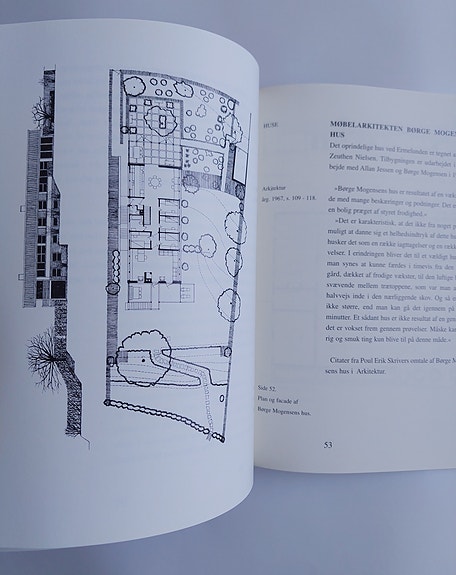 HUSE
Arkitektur
årg. 1967, s. 109 - 118.
Side 52.
Plan og facade af
Børge Mogensens hus.
MØBELARKITEKTEN BØRGE
HUS
Det oprindelige hus ved Ermelunden er tegnet
Zeuthen Nielsen. Tilbygningen er udarbejdet i
bejde med Allan Jensen og Børge Mogensen i
»Børge Mogensens hus er resultatet af en
de med mange beskæringer og podninger. Det
en bolig præget af styret frodighed.«
»Det er karakteristisk, at der ikke fra noget
muligt at danne sig et helhedsindtryk af dette
husker det som en række iagttagelser og en
velser. I erindringen bliver det til et vældigt
man synes at kunne færdes i timevis fra den
gård, dækket af frodige vækster, til den luftige
svævende mellem trætoppene, som var man
halvvejs inde i den nærliggende skov. Og så
ikke større, end man kan gå det igennem på
minutter. Et sådant hus er ikke resultat af en
det er vokset frem gennem prøvelser. Måske
rig og smuk ting kun blive til på denne måde.«
Citater fra Poul Erik Skrivers omtale af Børge
sens hus i Arkitektur.
53